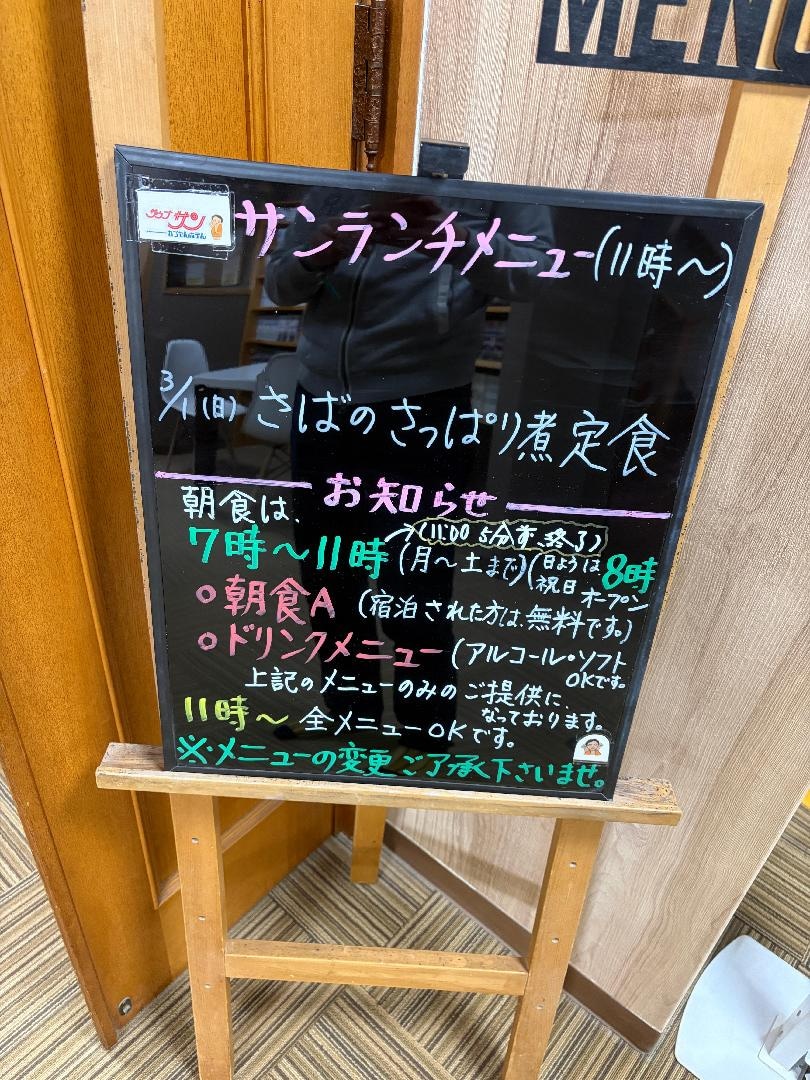 MENU
クラブ サン
サンランチメニュー(11時〜)
3/1(日) さばのさっぱり煮定食
お知らせ
朝食は、
7時〜11時(月〜土まで)(日ようは祝日8時オープン
→(11:00 5分前終了)
○朝食A (宿泊された方は、無料です。)
○ドリンクメニュー(アルコール・ソフトOKです。
上記のメニューのみのご提供に、なっております。
11時〜全メニューOKです。
※メニューの変更ご了承下さいませ。